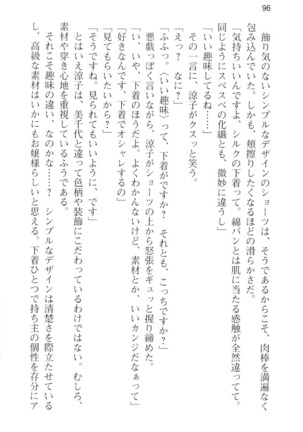 96
飾り気のないシンプルなデザインのショーツは、そうであるからこそ、肉棒を満遍なく
包み込んでいた。しかも、頬擦りしたくなるほどの滑らかさだ。
「気持ちいいんですよ、シルクの下着って。綿パンとは肌に当たる感触が全然違ってて。
同じようにスベスベの化繊とも、微妙に違うし」
「いい趣味してるね……」
「えっ？　なに？」
いきなり、涼子がクスッと笑う。
「ふふっ。〈いい趣味〉って、下着がですか？　それとも、こっちですか？」
悪戯っぽく言いながら、涼子がショーツの上から怒張をギュッと握り締めた。
「い、いや、下着のほうだよ。よくわかんないけど、素材とか、いいカンジだなぁって」
「好きなんです、下着でオシャレするの」
「見てもらいたいから？」
「そうですね。見られてもいいように、です」
とはいえ涼子は、美千代と違って色柄や装飾にこだわっているわけではない。むしろ、
素材や穿き心地を重視しているふうである。
それこそ趣味の違い、なのかな……？　シンプルなデザインは清楚さを際立たせている
し、高級な素材はいかにもお嬢様らしいと思える。下着ひとつで持ち主の個性を存分にア